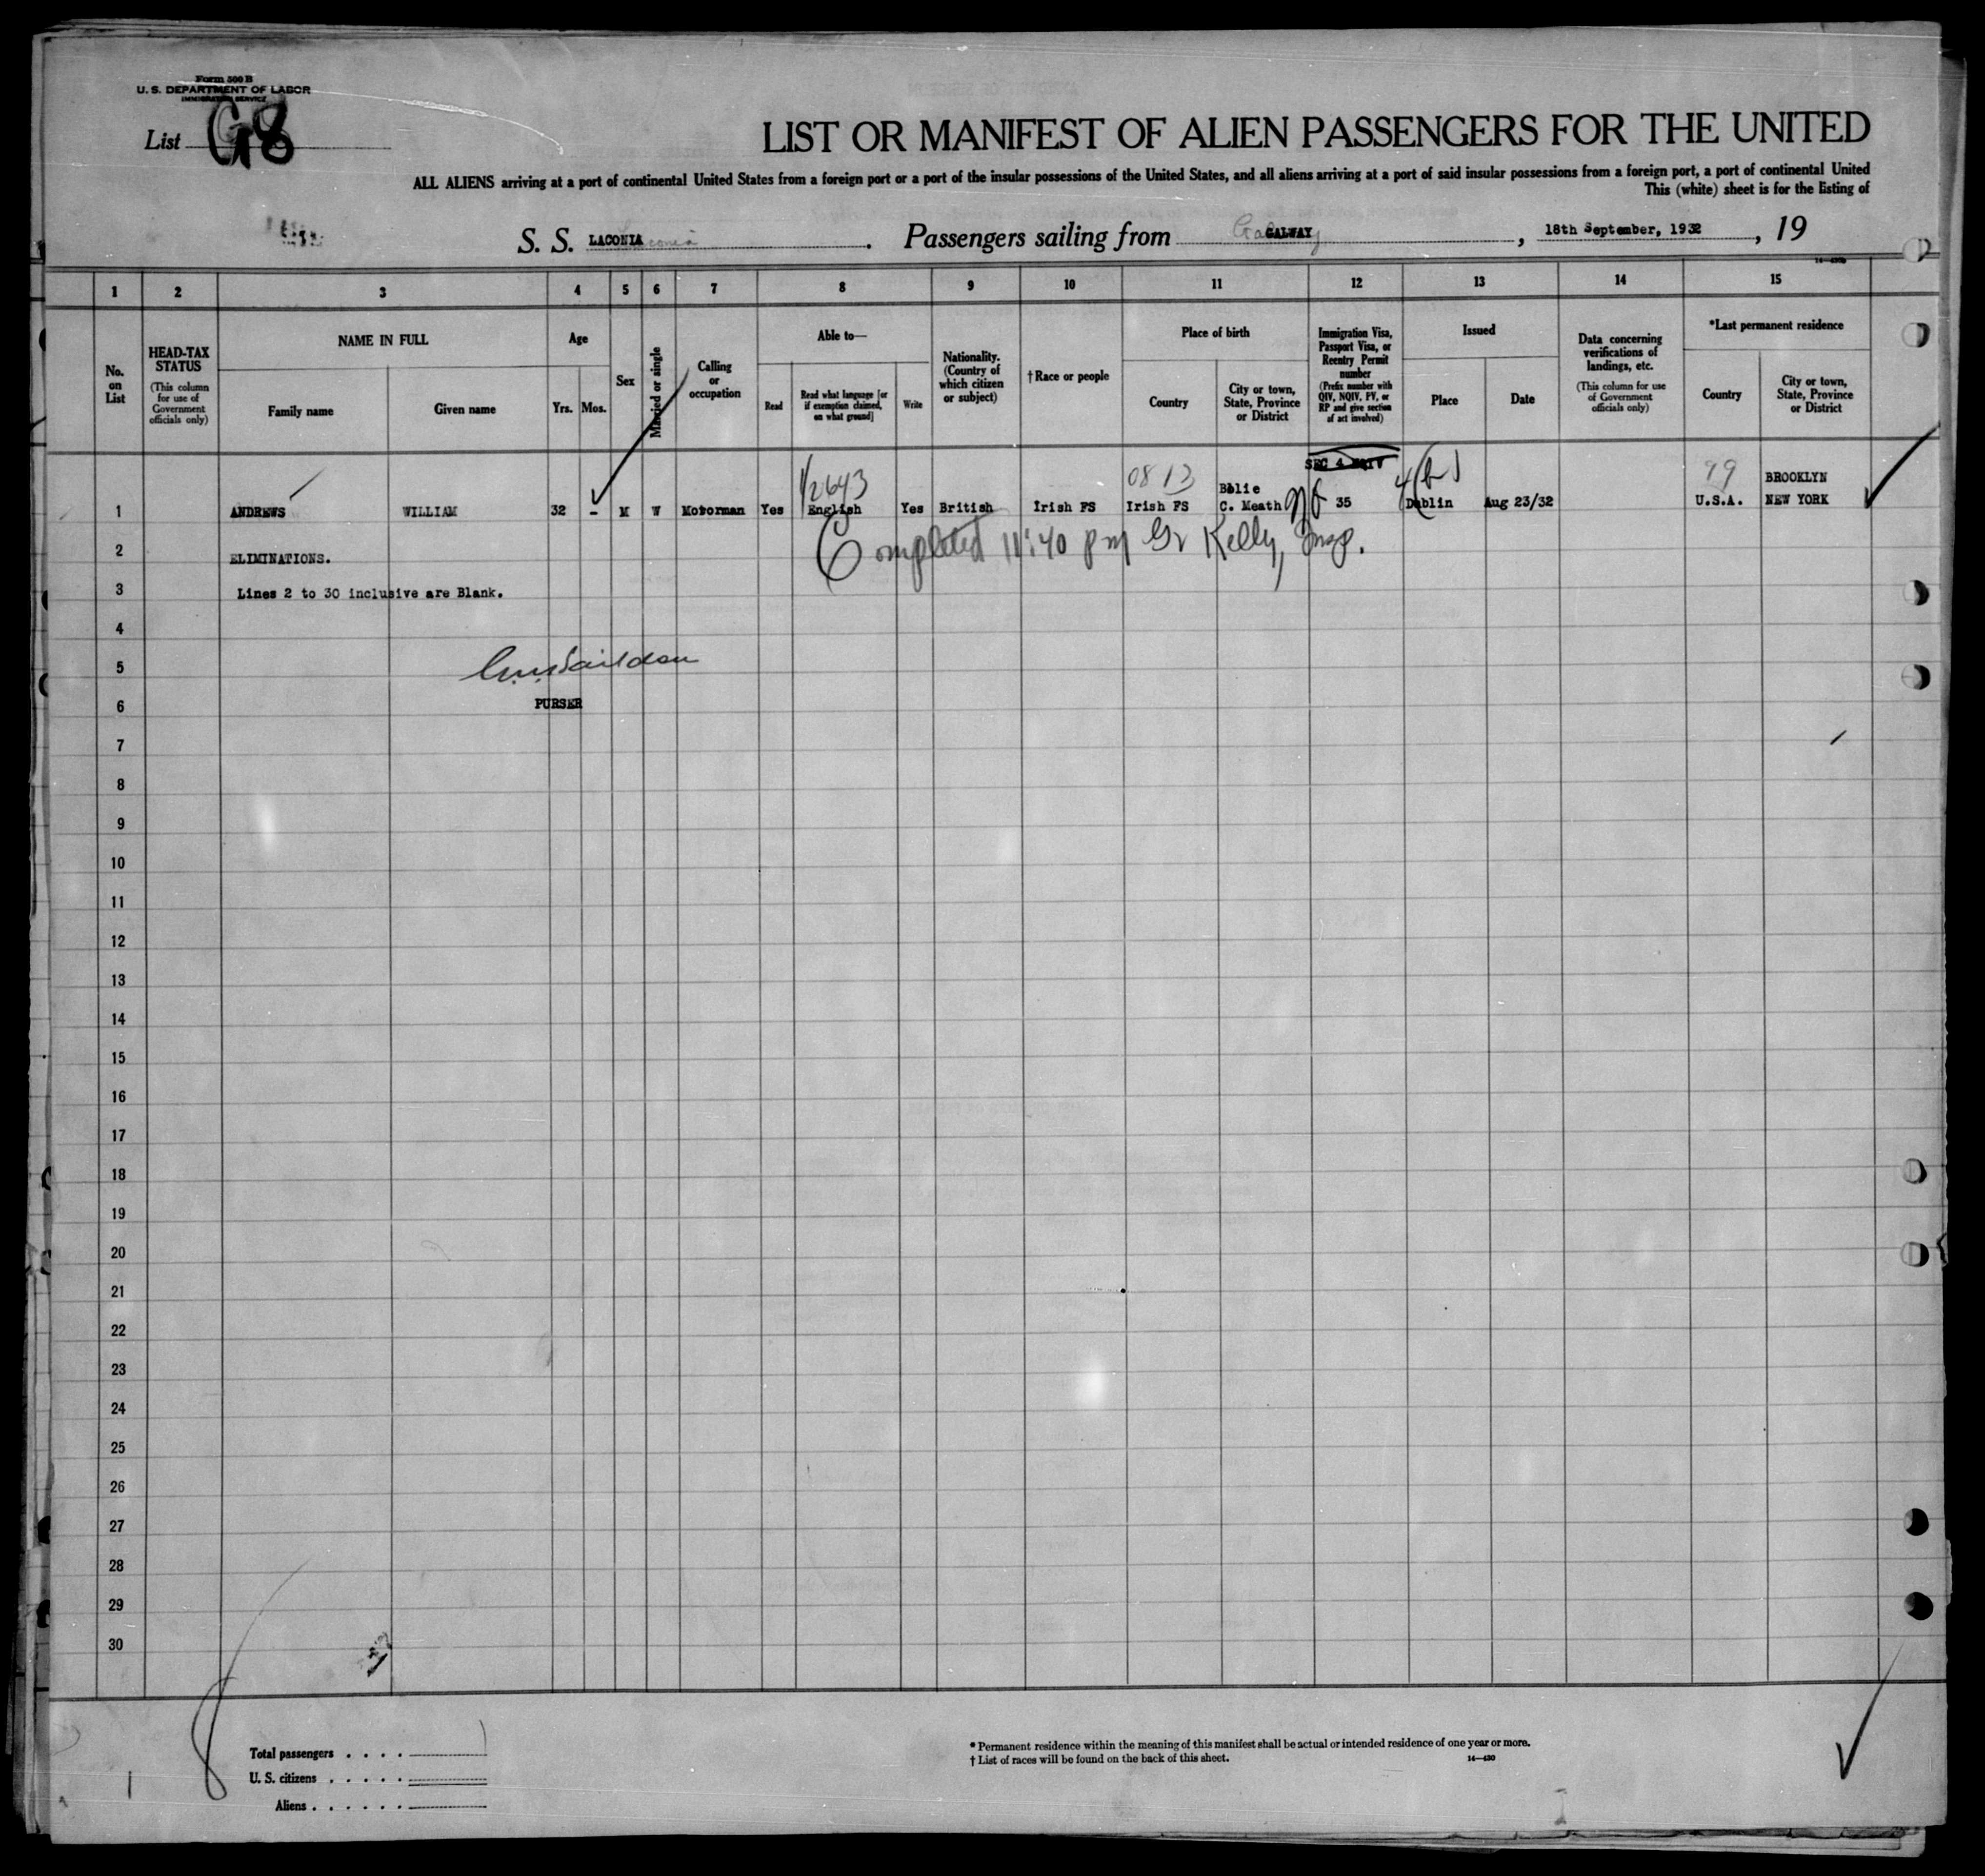 Form 500 B
U. S. DEPARTMENT OF LABOR
IMMIGRATION SERVICE
List G8
LIST OR MANIFEST OF ALIEN PASSENGERS FOR THE UNITED
ALL ALIENS arriving at a port of continental United States from a foreign port or a port of the insular possessions of the United States, and all aliens arriving at a port of said insular possessions from a foreign port, a port of continental United
This (white) sheet is for the listing of
S. S. LACONIA . Passengers sailing from GALWAY , 18th September, 1932 , 19
14—430
1 2 3 4 5 6 7 8 9 10 11 12 13 14 15
No. on List
HEAD-TAX STATUS (This column for use of Government officials only)
NAME IN FULL
Family name Given name
Age
Yrs. Mos.
Sex
Married or single
Calling or occupation
Able to—
Read Read what language [or if exemption claimed, on what ground] Write
Nationality. (Country of which citizen or subject)
†Race or people
Place of birth
Country City or town, State, Province or District
Immigration Visa, Passport Visa, or Reentry Permit number (Prefix number with QIV, NQIV, PV, or RP and give section of act involved)
Issued
Place Date
Data concerning verifications of landings, etc. (This column for use of Government officials only)
*Last permanent residence
Country City or town, State, Province or District
SEC 4 NQIV 4(b)
1/2643 0813 99
1 ANDREWS WILLIAM 32 – M W Motorman Yes English Yes British Irish FS Irish FS Bblie C. Meath 35 Dublin Aug 23/32 U.S.A. BROOKLYN NEW YORK
Completed 11:40 pm Gr Kelly, Insp.
2 ELIMINATIONS.
3 Lines 2 to 30 inclusive are Blank.
4
5
6 PURSER
7
8
9
10
11
12
13
14
15
16
17
18
19
20
21
22
23
24
25
26
27
28
29
30
Total passengers . . . .
U. S. citizens . . . . .
Aliens . . . . . .
* Permanent residence within the meaning of this manifest shall be actual or intended residence of one year or more.
† List of races will be found on the back of this sheet. 14—430